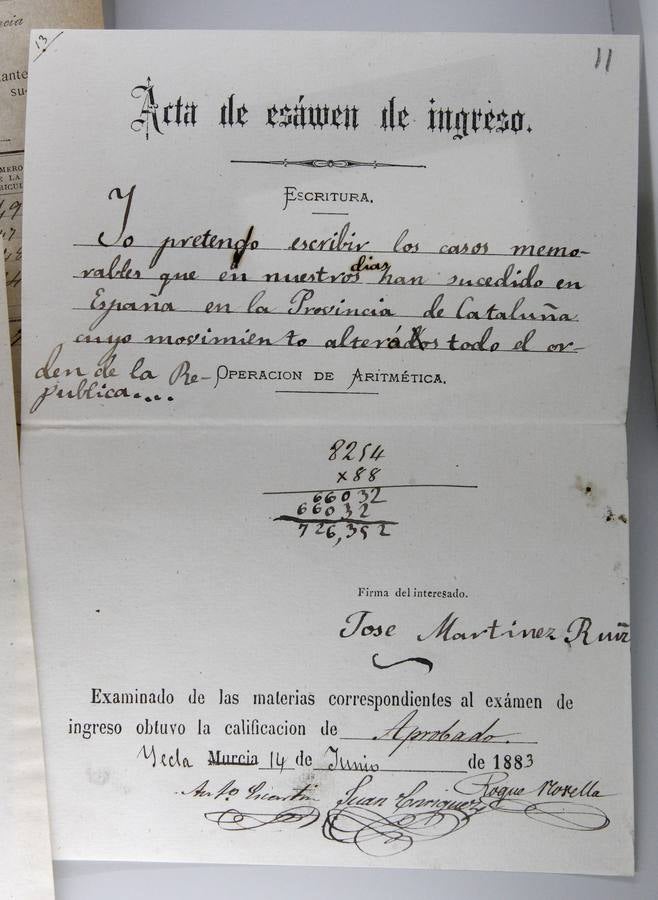 13
11
Acta de esámen de ingreso.
ESCRITURA.
Yo pretendo escribir los casos memo-
rables que en nuestros dias han sucedido en
España en la Provincia de Cataluña
cuyo movimiento todo el or-
den de la Re-
publica....
OPERACION DE ARITMÉTICA.
8254
x88
66032
66032
726,352
Firma del interesado.
Jose Martinez Ruiz
Examinado de las materias correspondientes al exámen de
ingreso obtuvo la calificacion de Aprobado.
Yecla Murcia 14 de Junio de 1883
Juan Enriquez Roque